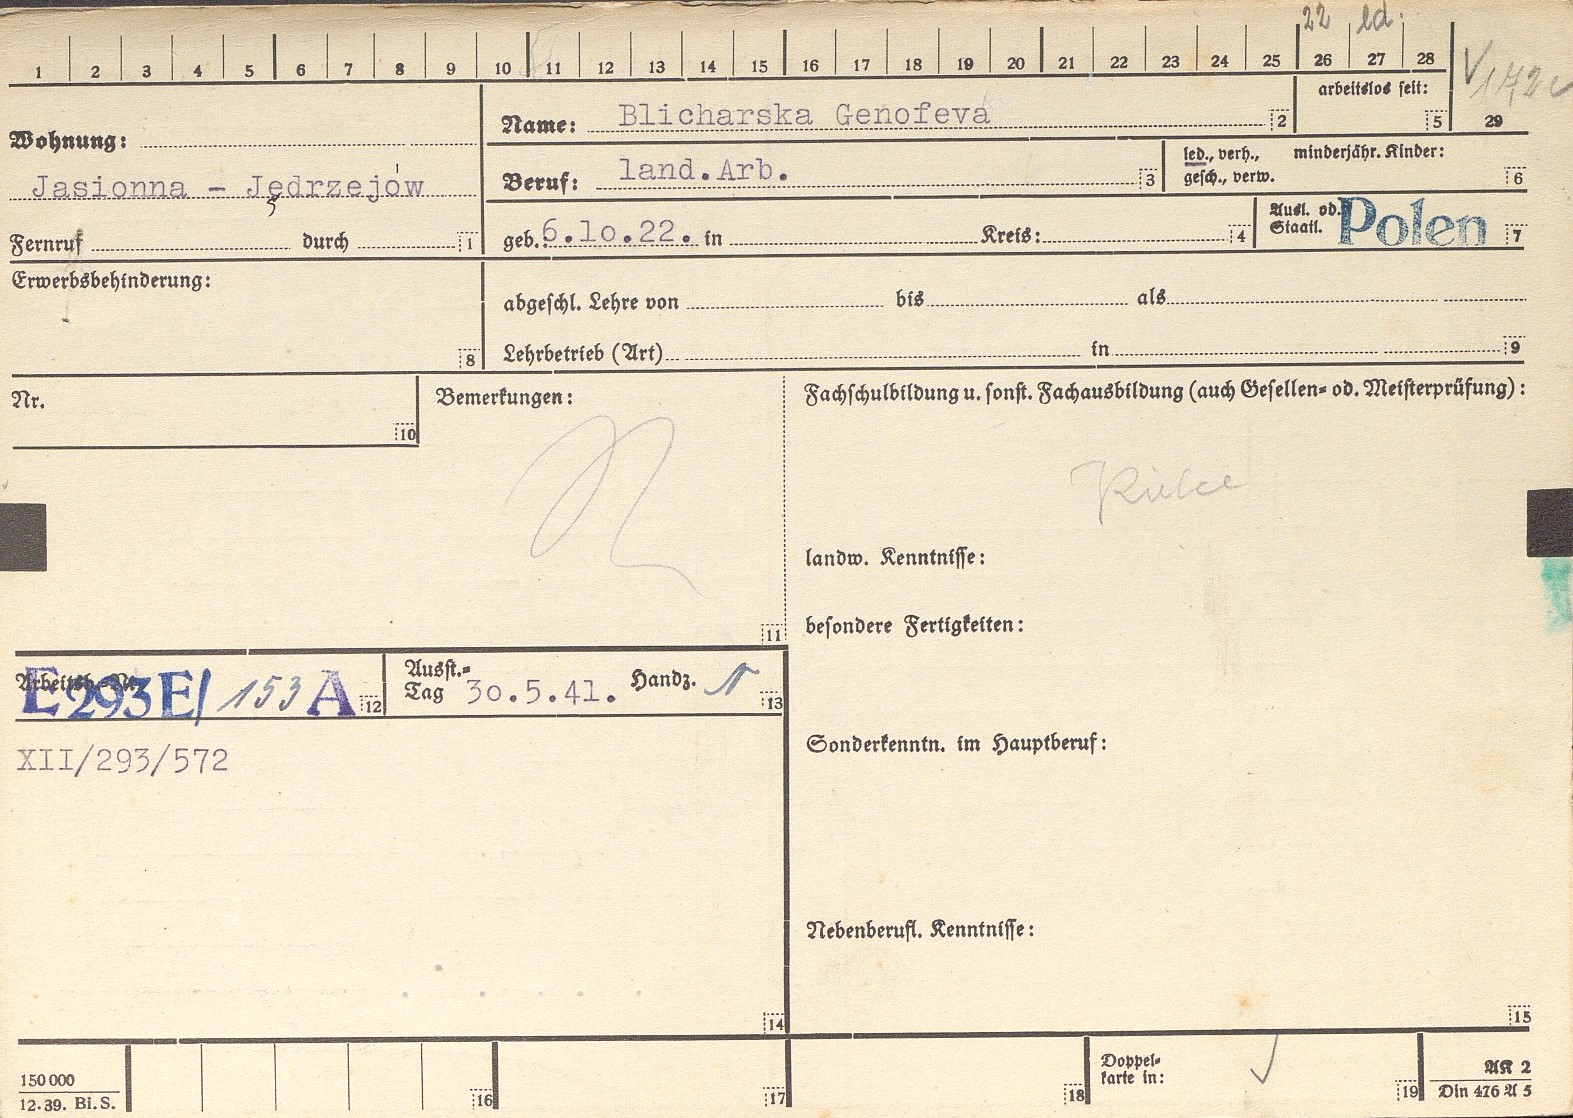 22 led.
1 2 3 4 5 6 7 8 9 10 11 12 13 14 15 16 17 18 19 20 21 22 23 24 25 26 27 28
29
Wohnung:
Jasionna - Jędrzejów
Fernruf durch 1
Name: Blicharska Genofeva 2
arbeitslos seit: 5
Beruf: land.Arb. 3
led., verh., minderjähr. Kinder:
gesch., verw. 6
geb. 6.10.22. in Kreis: 4
Ausl. od. Polen
Staatl. 7
Erwerbsbehinderung: 8
abgeschl. Lehre von bis als
Lehrbetrieb (Art) in 9
Nr. 10
Bemerkungen: 11
Fachschulbildung u. sonst. Fachausbildung (auch Gesellen- od. Meisterprüfung):
Kielce
landw. Kenntnisse:
besondere Fertigkeiten:
Sonderkenntn. im Hauptberuf:
Nebenberufl. Kenntnisse:
15
Arbeitsb.-Nr. E 293 E/ 153 A 12
Ausst.-
Tag 30.5.41. Handz. 13
XII/293/572
14
150 000
12.39. Bi.S.
16 17 18
Doppel-
karte in: 19
AK 2
Din 476 A 5